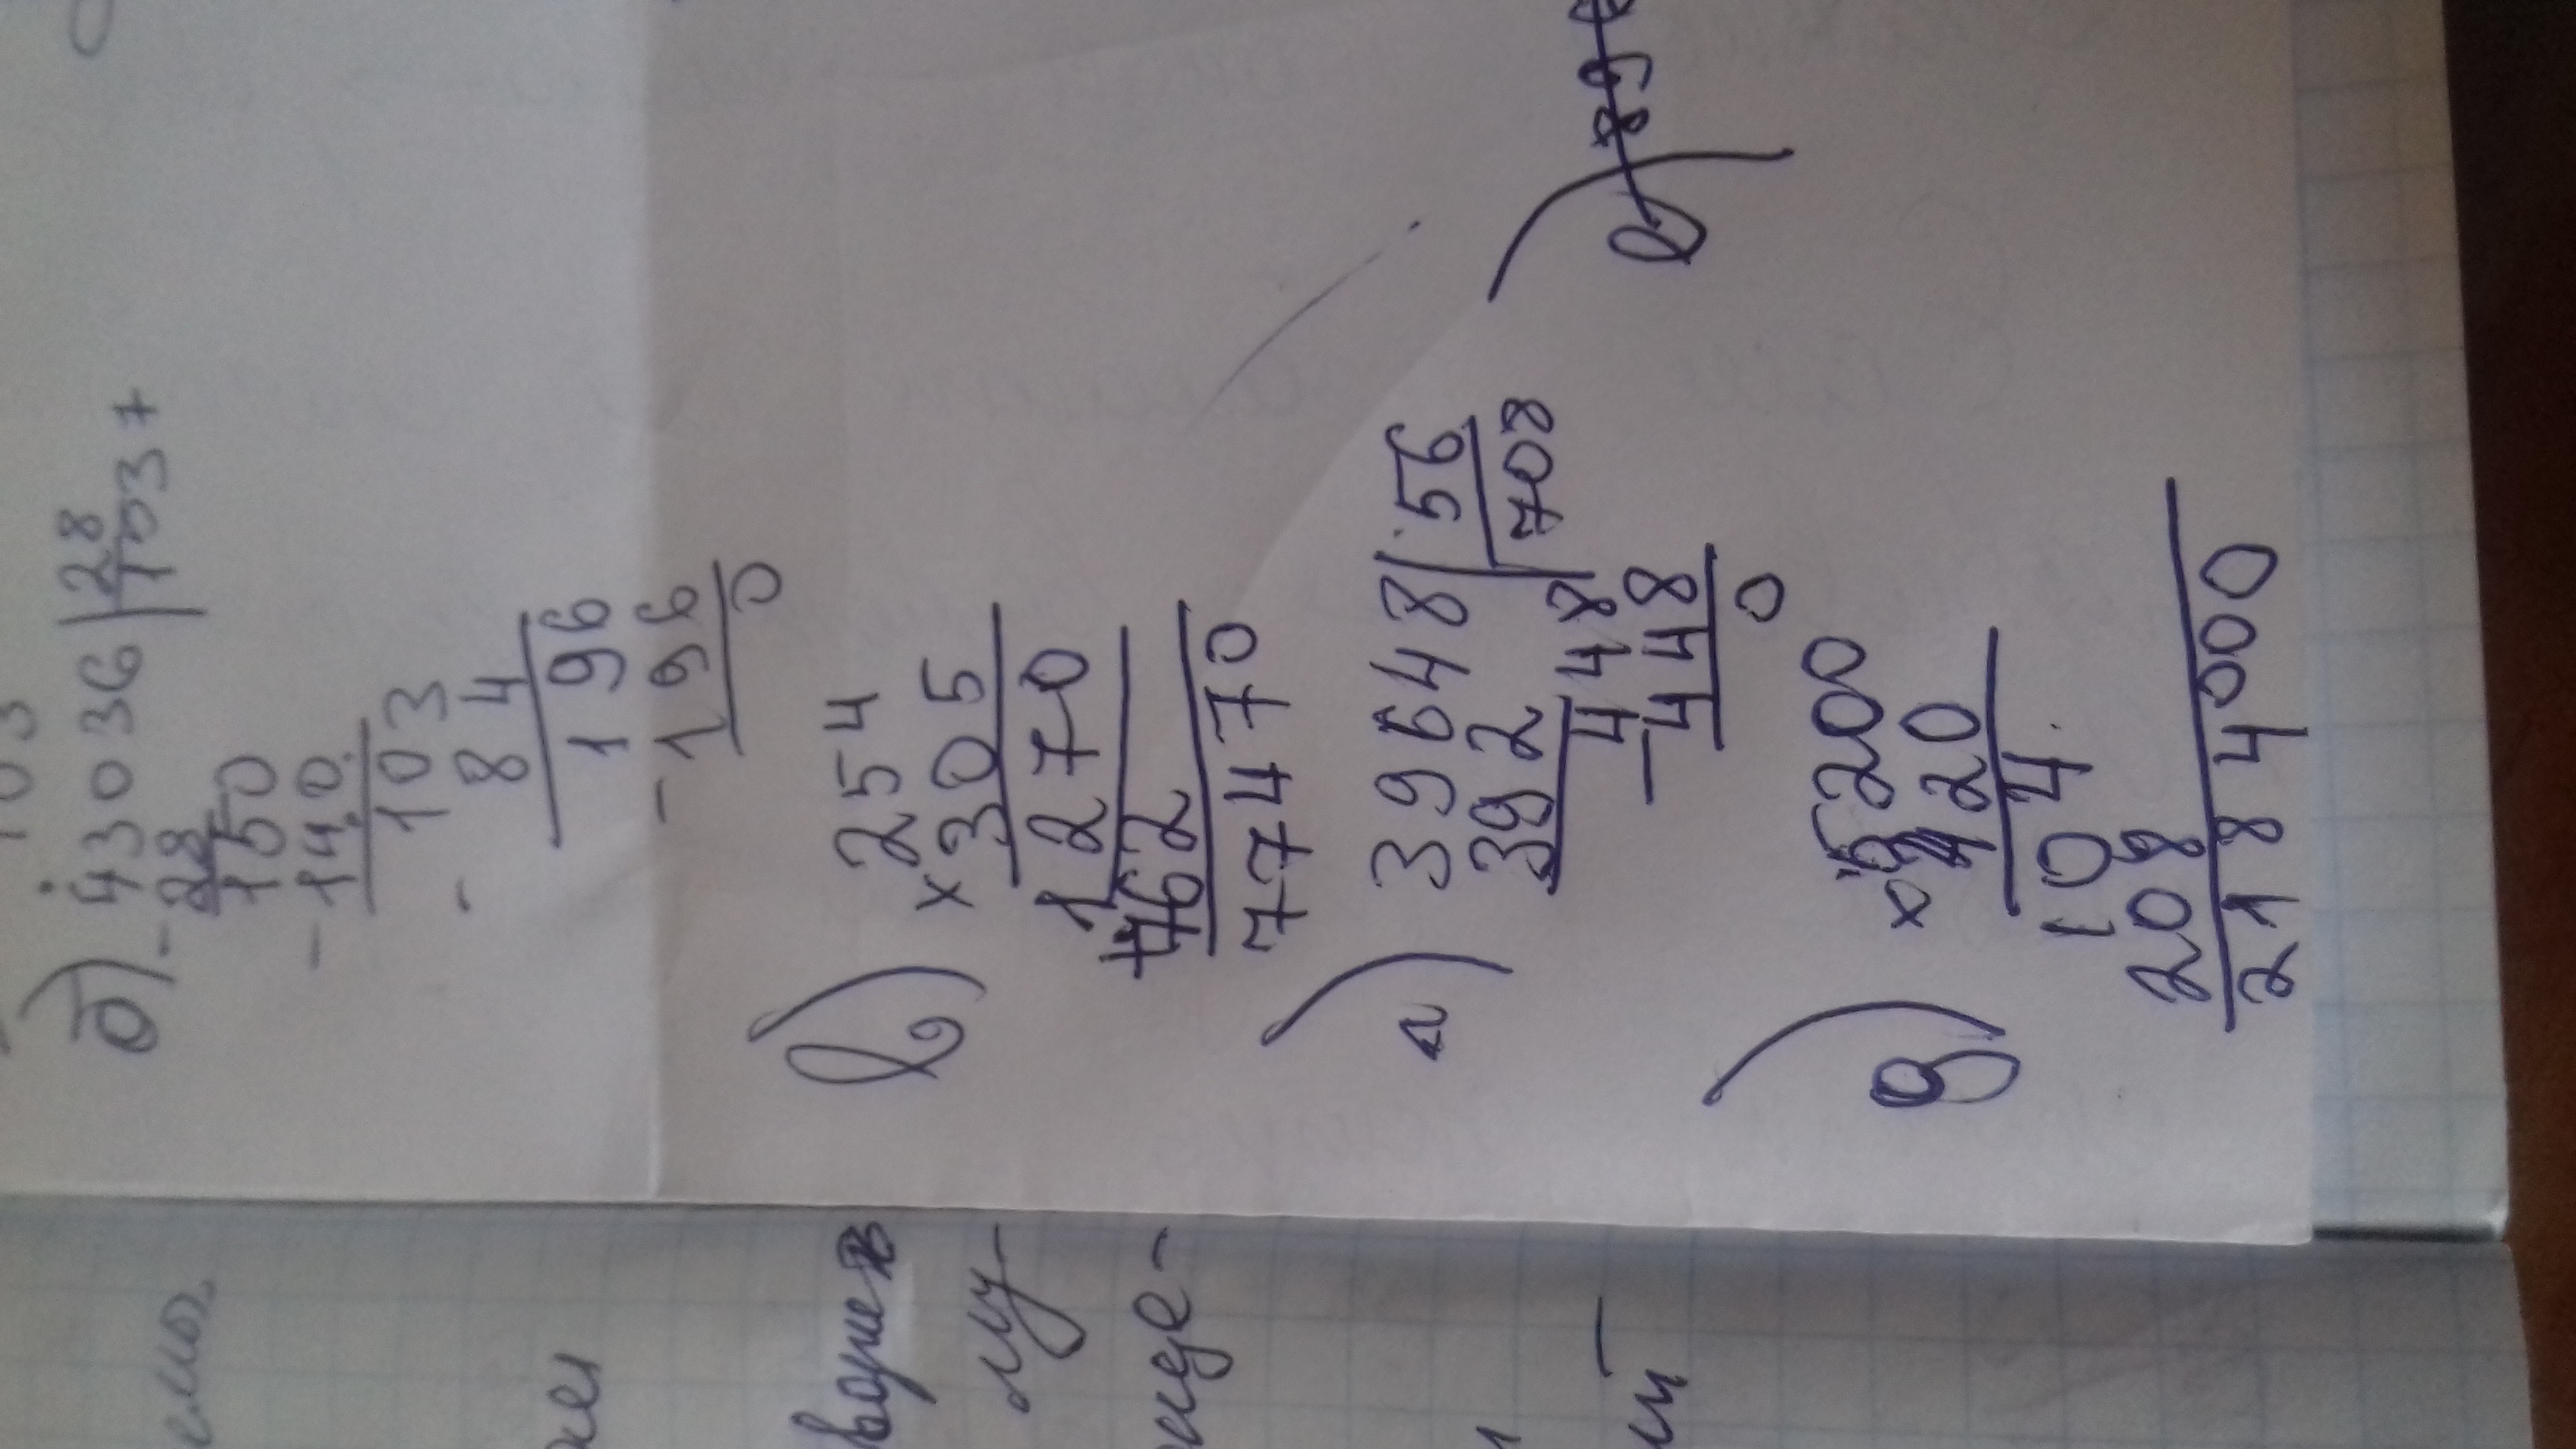 103
б) 43036 | 28
- 28 1537
150
- 140
103
- 84
196
- 196
0
в) 254
× 305
1270
+ 762
77470
г) 39648 | 56
392 708
448
- 448
0
д) 5200
× 420
104
208
2184000
е) 89
му-